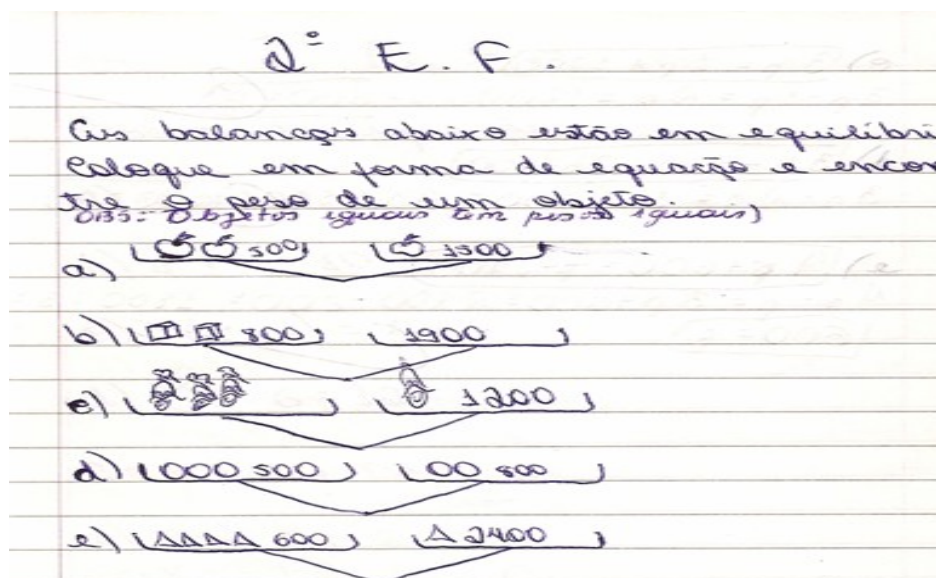 2º E. F.
As balanças abaixo estão em equilíbri
Coloque em forma de equação e encon
tre o peso de um objeto.
OBS: Objetos iguais tem pesos iguais)
a) 500 1500
b) 800 1900
c) 1200
d) 500 800
e) 600 2400